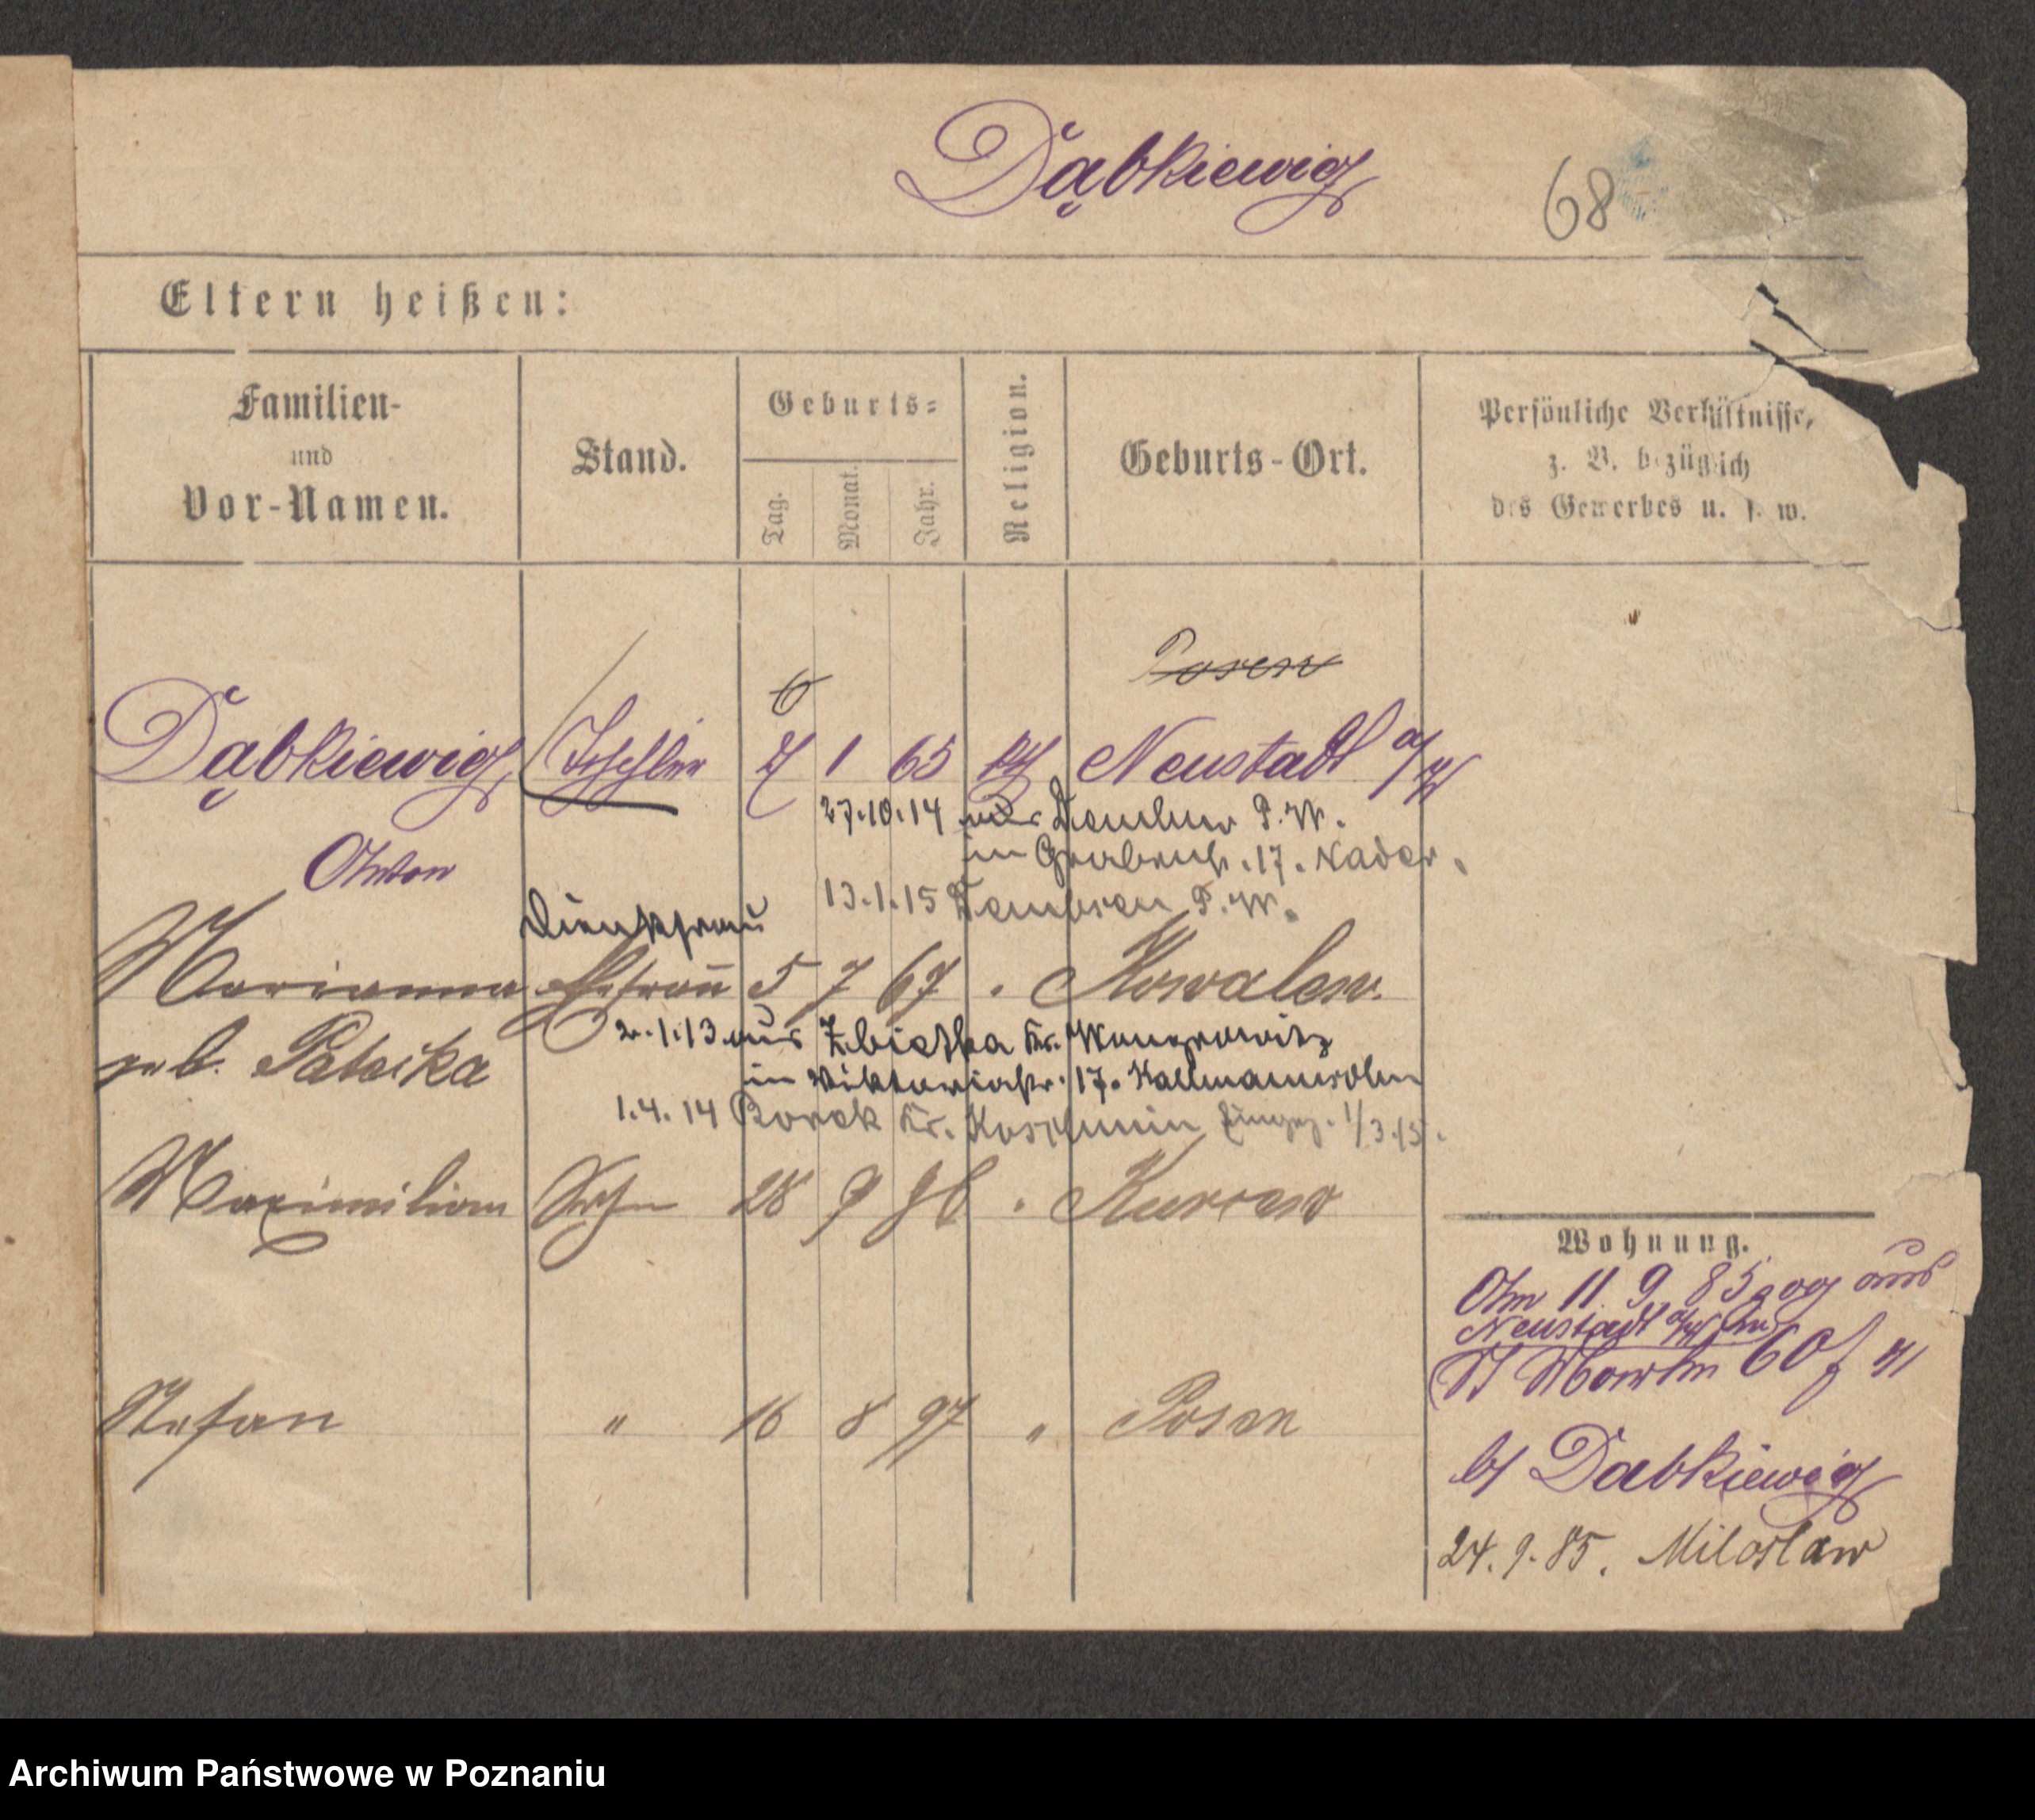 Dąbkiewicz
68
Eltern heißen:
Familien-
und
Vor-Namen.
Stand.
Geburts-
Tag.
Monat.
Jahr.
Religion.
Geburts-Ort.
Persönliche Verhältnisse,
z. B. bezüglich
des Gewerbes u. s. w.
Posen
6
Dąbkiewicz Tischler 7 1 65 Neustadt a/W
27.10.14 aus P. W.
in Grabenstr. 17.
Anton
13.1.15 Dembsen P. W.
Dienstfrau
Marianna Ehefrau 5 7 67 Kowalew.
2.1.13 aus Zbietka Kr. Wongrowitz
geb. Pateika
in Viktoriastr. 17.
1.4.14 Borek Kr. Koschmin 1/3.15.
Maximilian Sohn 28 9 96
Stefan " 16 8 97 " Posen
Wohnung.
Am 11. 9. 85 zog aus
Neustadt a/W in
St Martin 60
b/ Dabkiewicz
24. 9. 85. Miloslaw
Archiwum Państwowe w Poznaniu